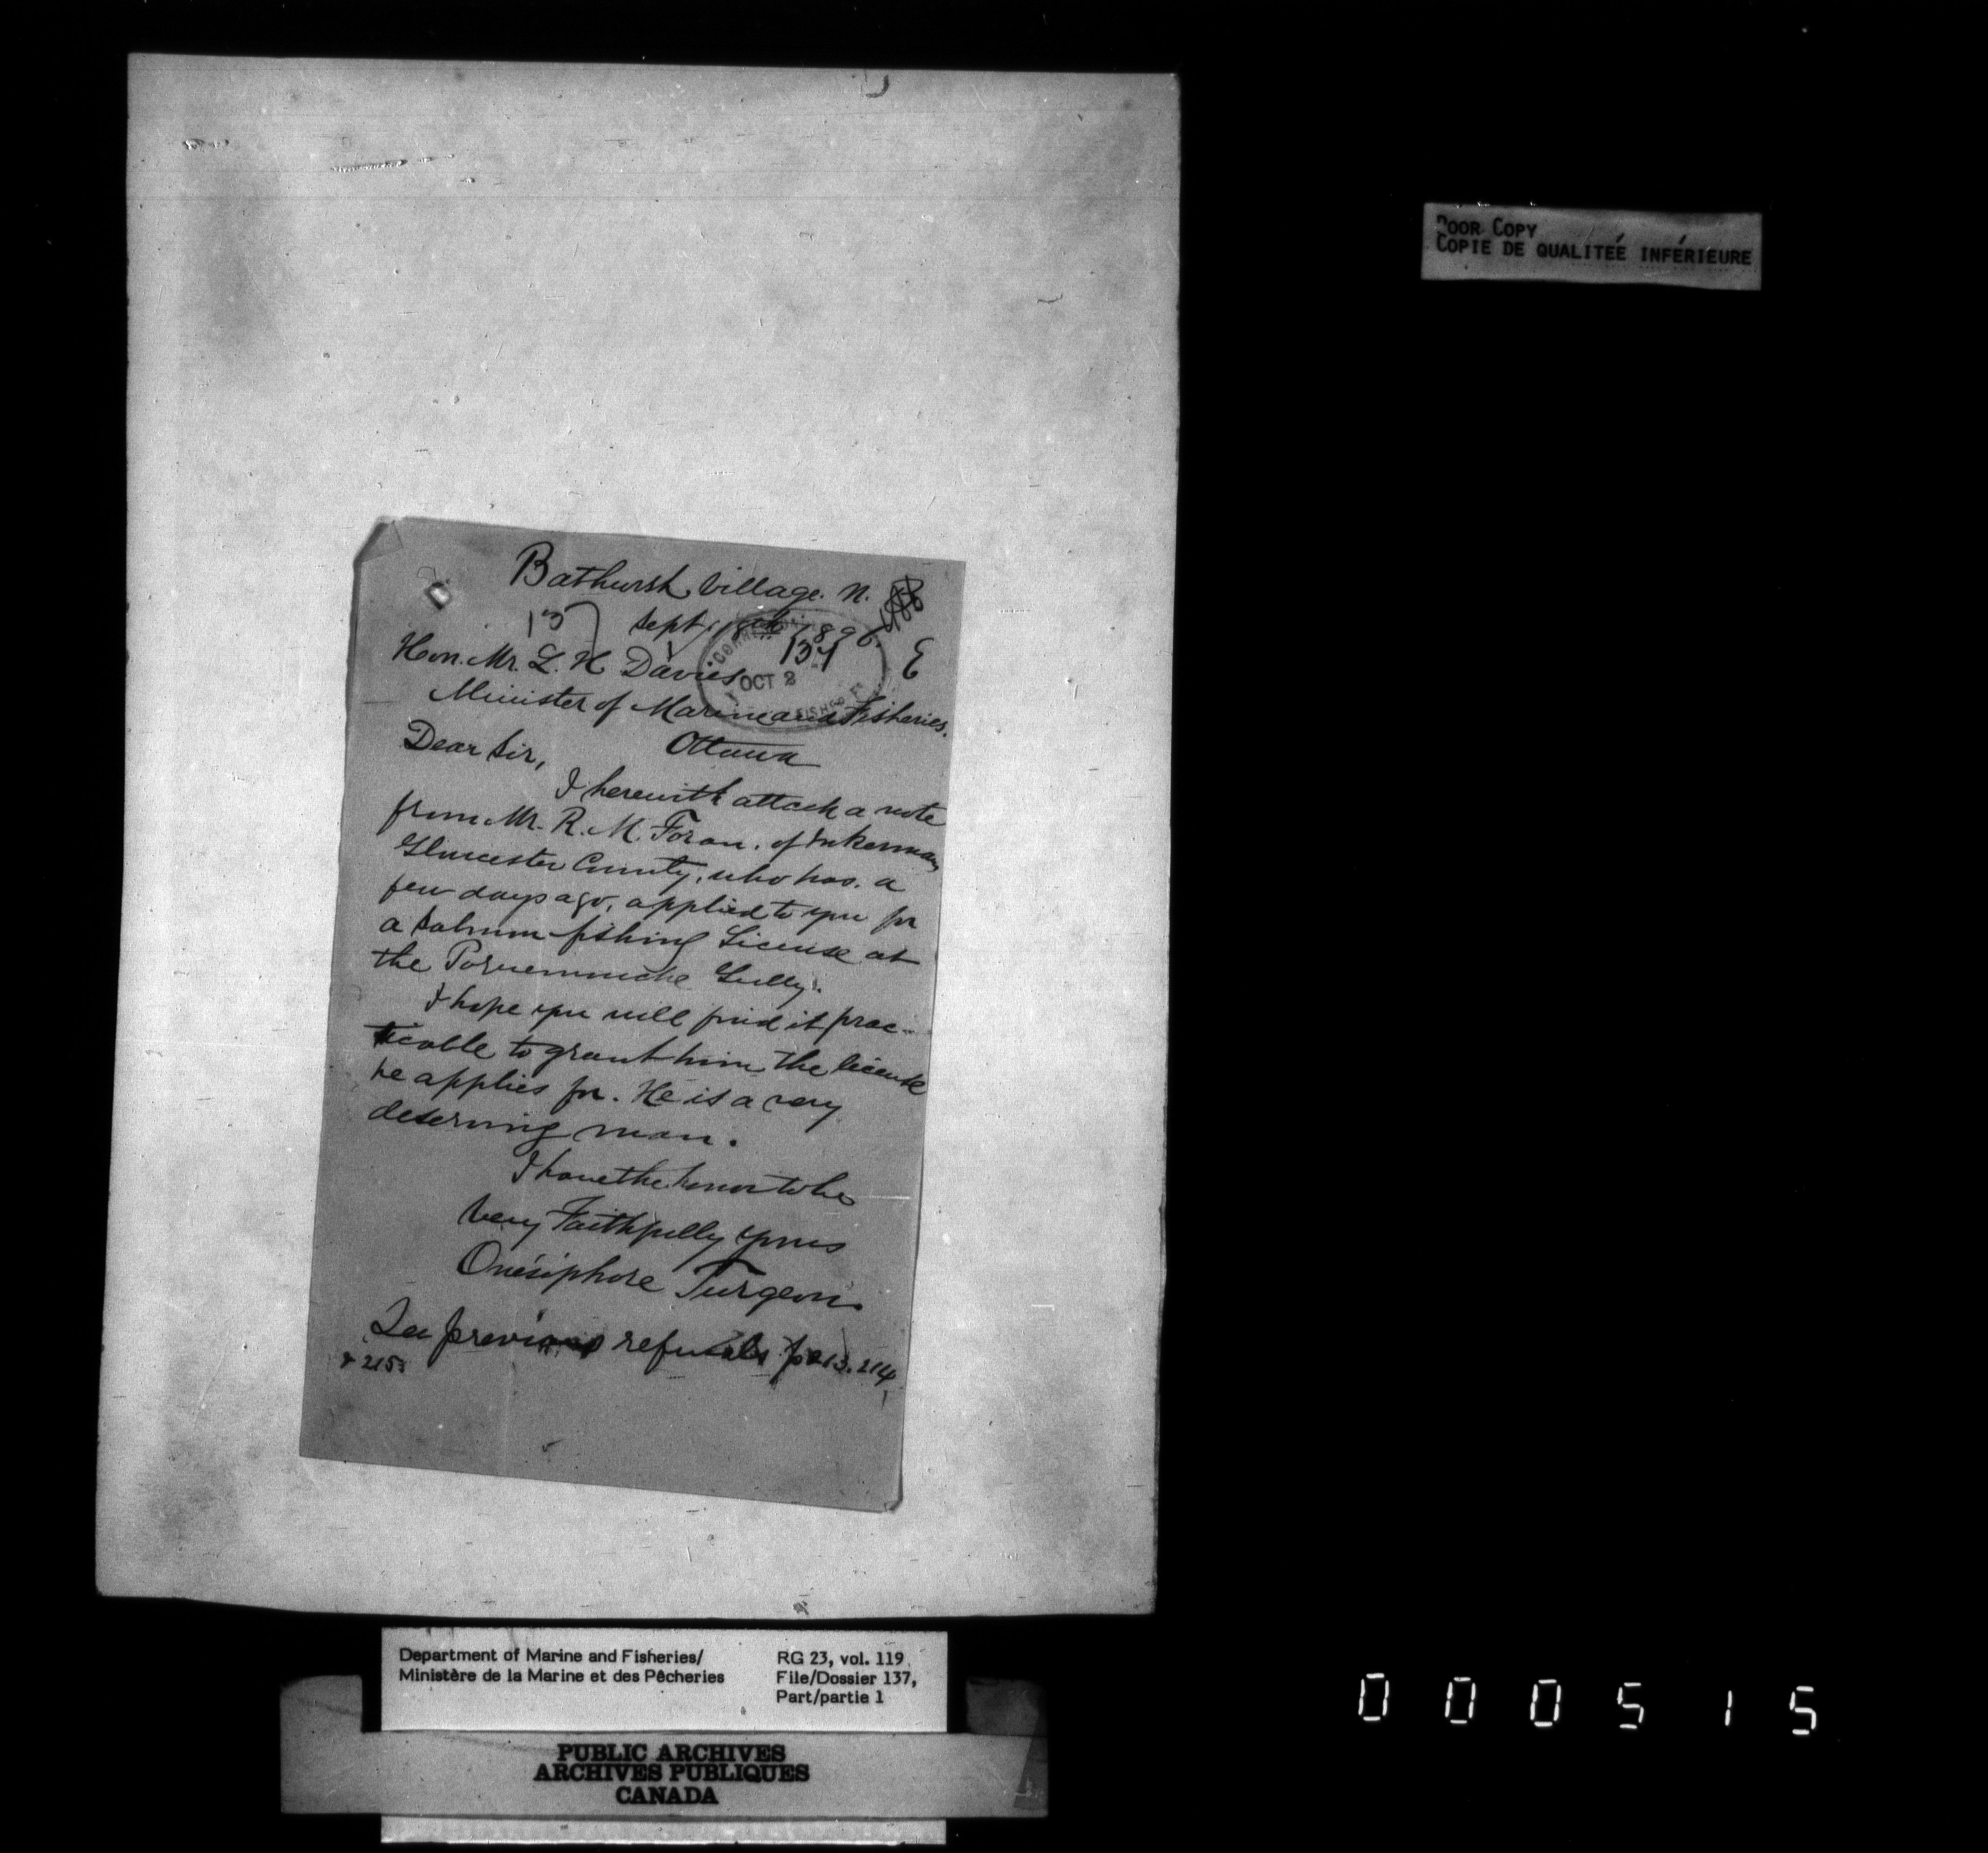 POOR COPY
COPIE DE QUALITEÉ INFÉRIEURE
Bathurst Village. N. B
Sept. 18th 1896.
137
E
OCT 2
Hon. Mr. L. H Davies
Minister of Marine and Fisheries.
Ottawa
Dear Sir,
I herewith attach a note
from Mr. R. M. Foran, of Inkerman,
Gloucester County, who has, a
few days ago, applied to you for
a Salmon fishing License at
the Gully.
I hope you will find it prac-
ticable to grant him the license
he applies for. He is a very
deserving man.
I have the honor to be
Very Faithfully yours
Onésiphore Turgeon
See previous refusals p 213. 214
& 215
Department of Marine and Fisheries/
Ministère de la Marine et des Pêcheries
RG 23, vol. 119,
File/Dossier 137,
Part/partie 1
PUBLIC ARCHIVES
ARCHIVES PUBLIQUES
CANADA
000515